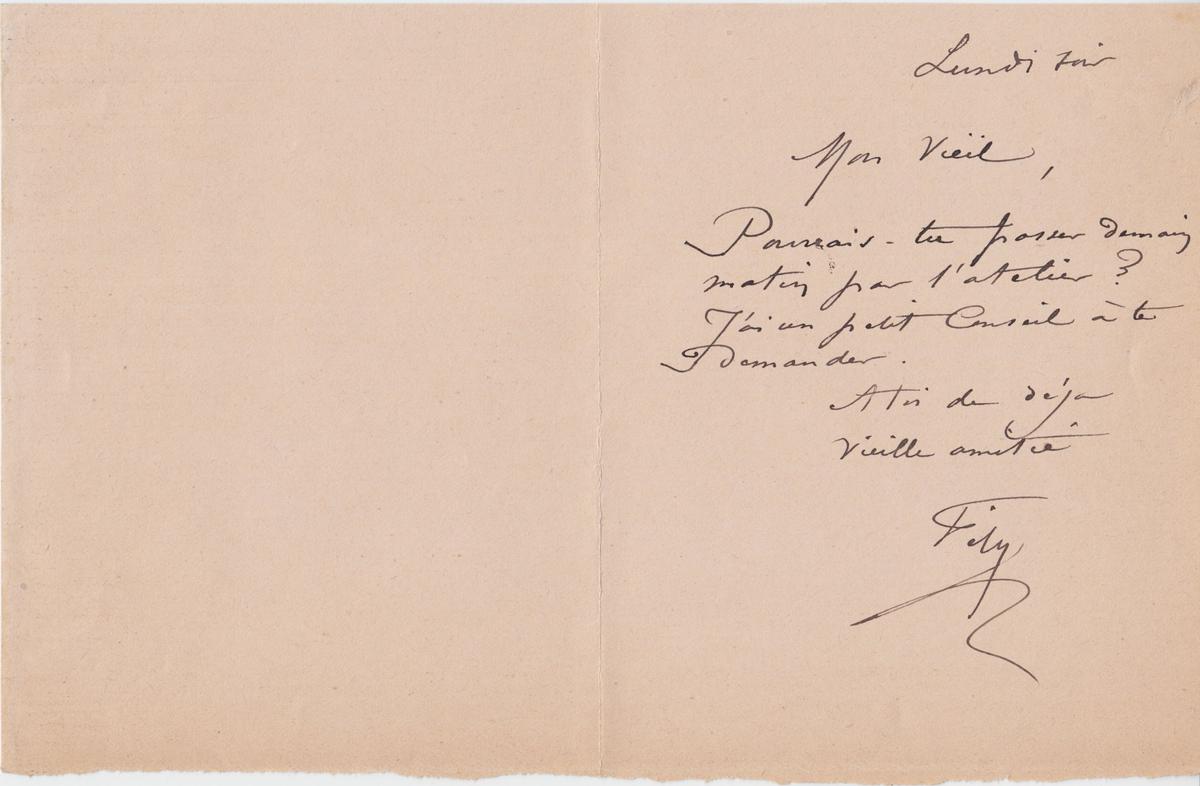 Lundi soir
Mon Vieil,
Pourrais-tu passer demain
matin par l'atelier ?
J'ai un petit Conseil à te
demander.
A toi de déjà
vieille amitié